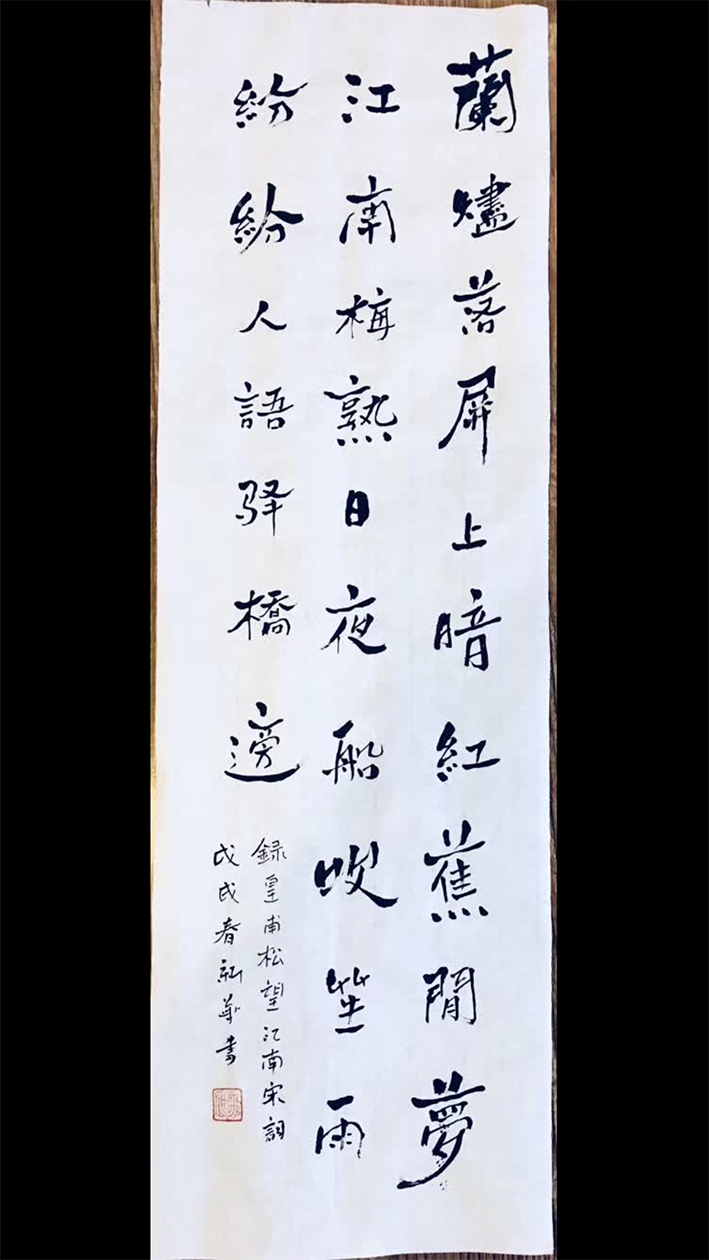 蘭燼落屏上暗紅蕉閒夢
江南梅熟日夜船吹笙雨
紛紛人語驿橋邊
録皇甫松望江南宋詞
戊戌春書